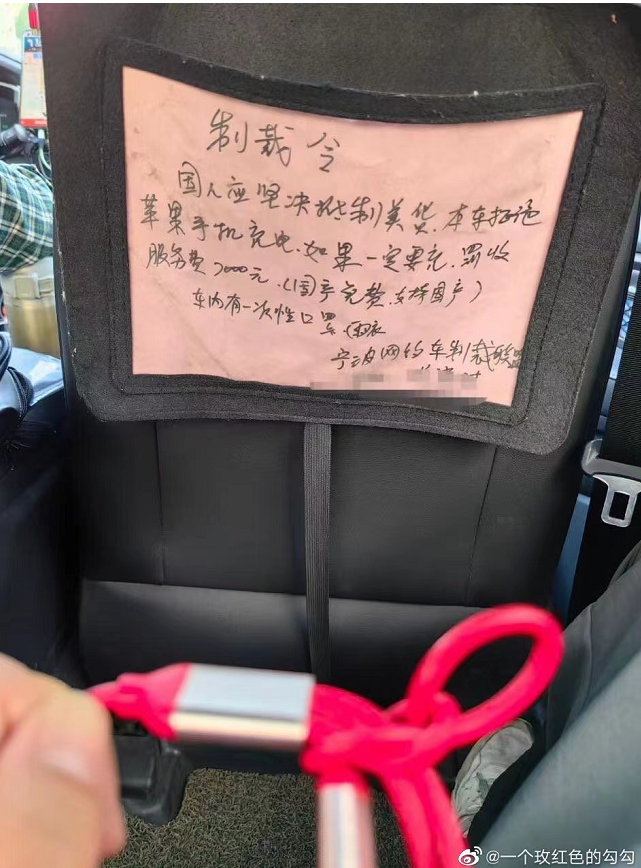 制裁令
国人应坚决抵制美货.本车拒绝
苹果手机充电.如果一定要充.需收
服务费2000元.(国产免费.支持国产)
车内有一次性口罩
宁波网约车制裁联盟
@一个玫红色的勾勾